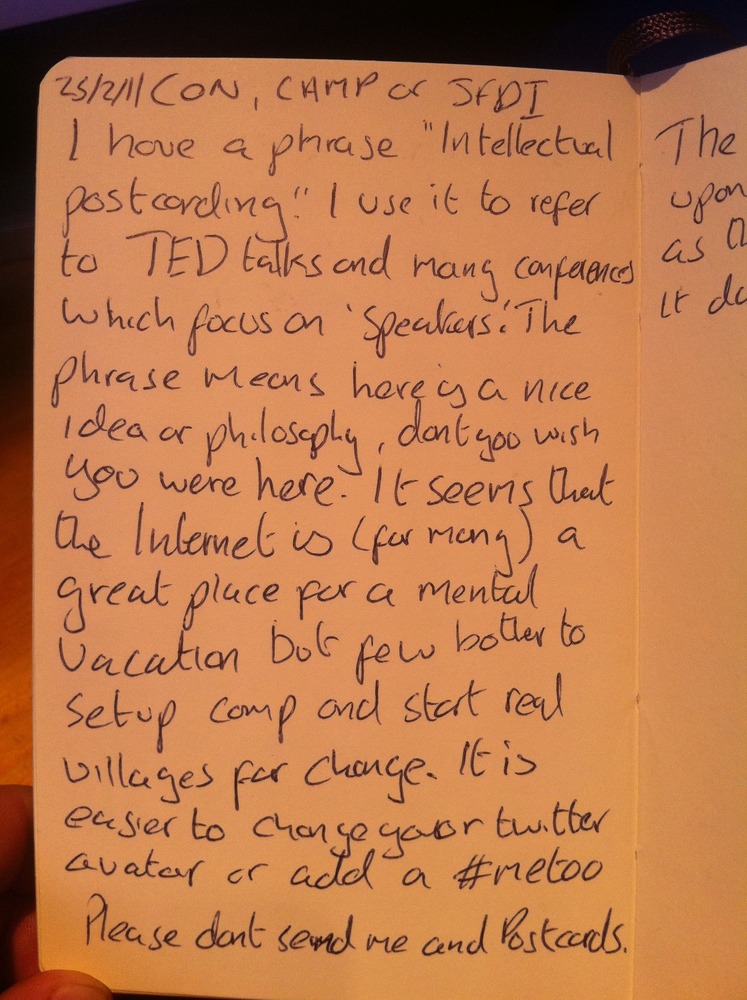 25/2/11 CON, CAMP or JFDI
I have a phrase "Intellectual
postcarding." I use it to refer
to TED talks and many conferences
which focus on 'Speakers'. The
phrase means here is a nice
idea or philosophy, dont you wish
you were here. It seems that
the Internet is (for many) a
great place for a mental
vacation but few bother to
setup camp and start real
villages for change. It is
easier to change your twitter
avatar or add a #metoo
Please dont send me and Postcards.
The
upon
as
it